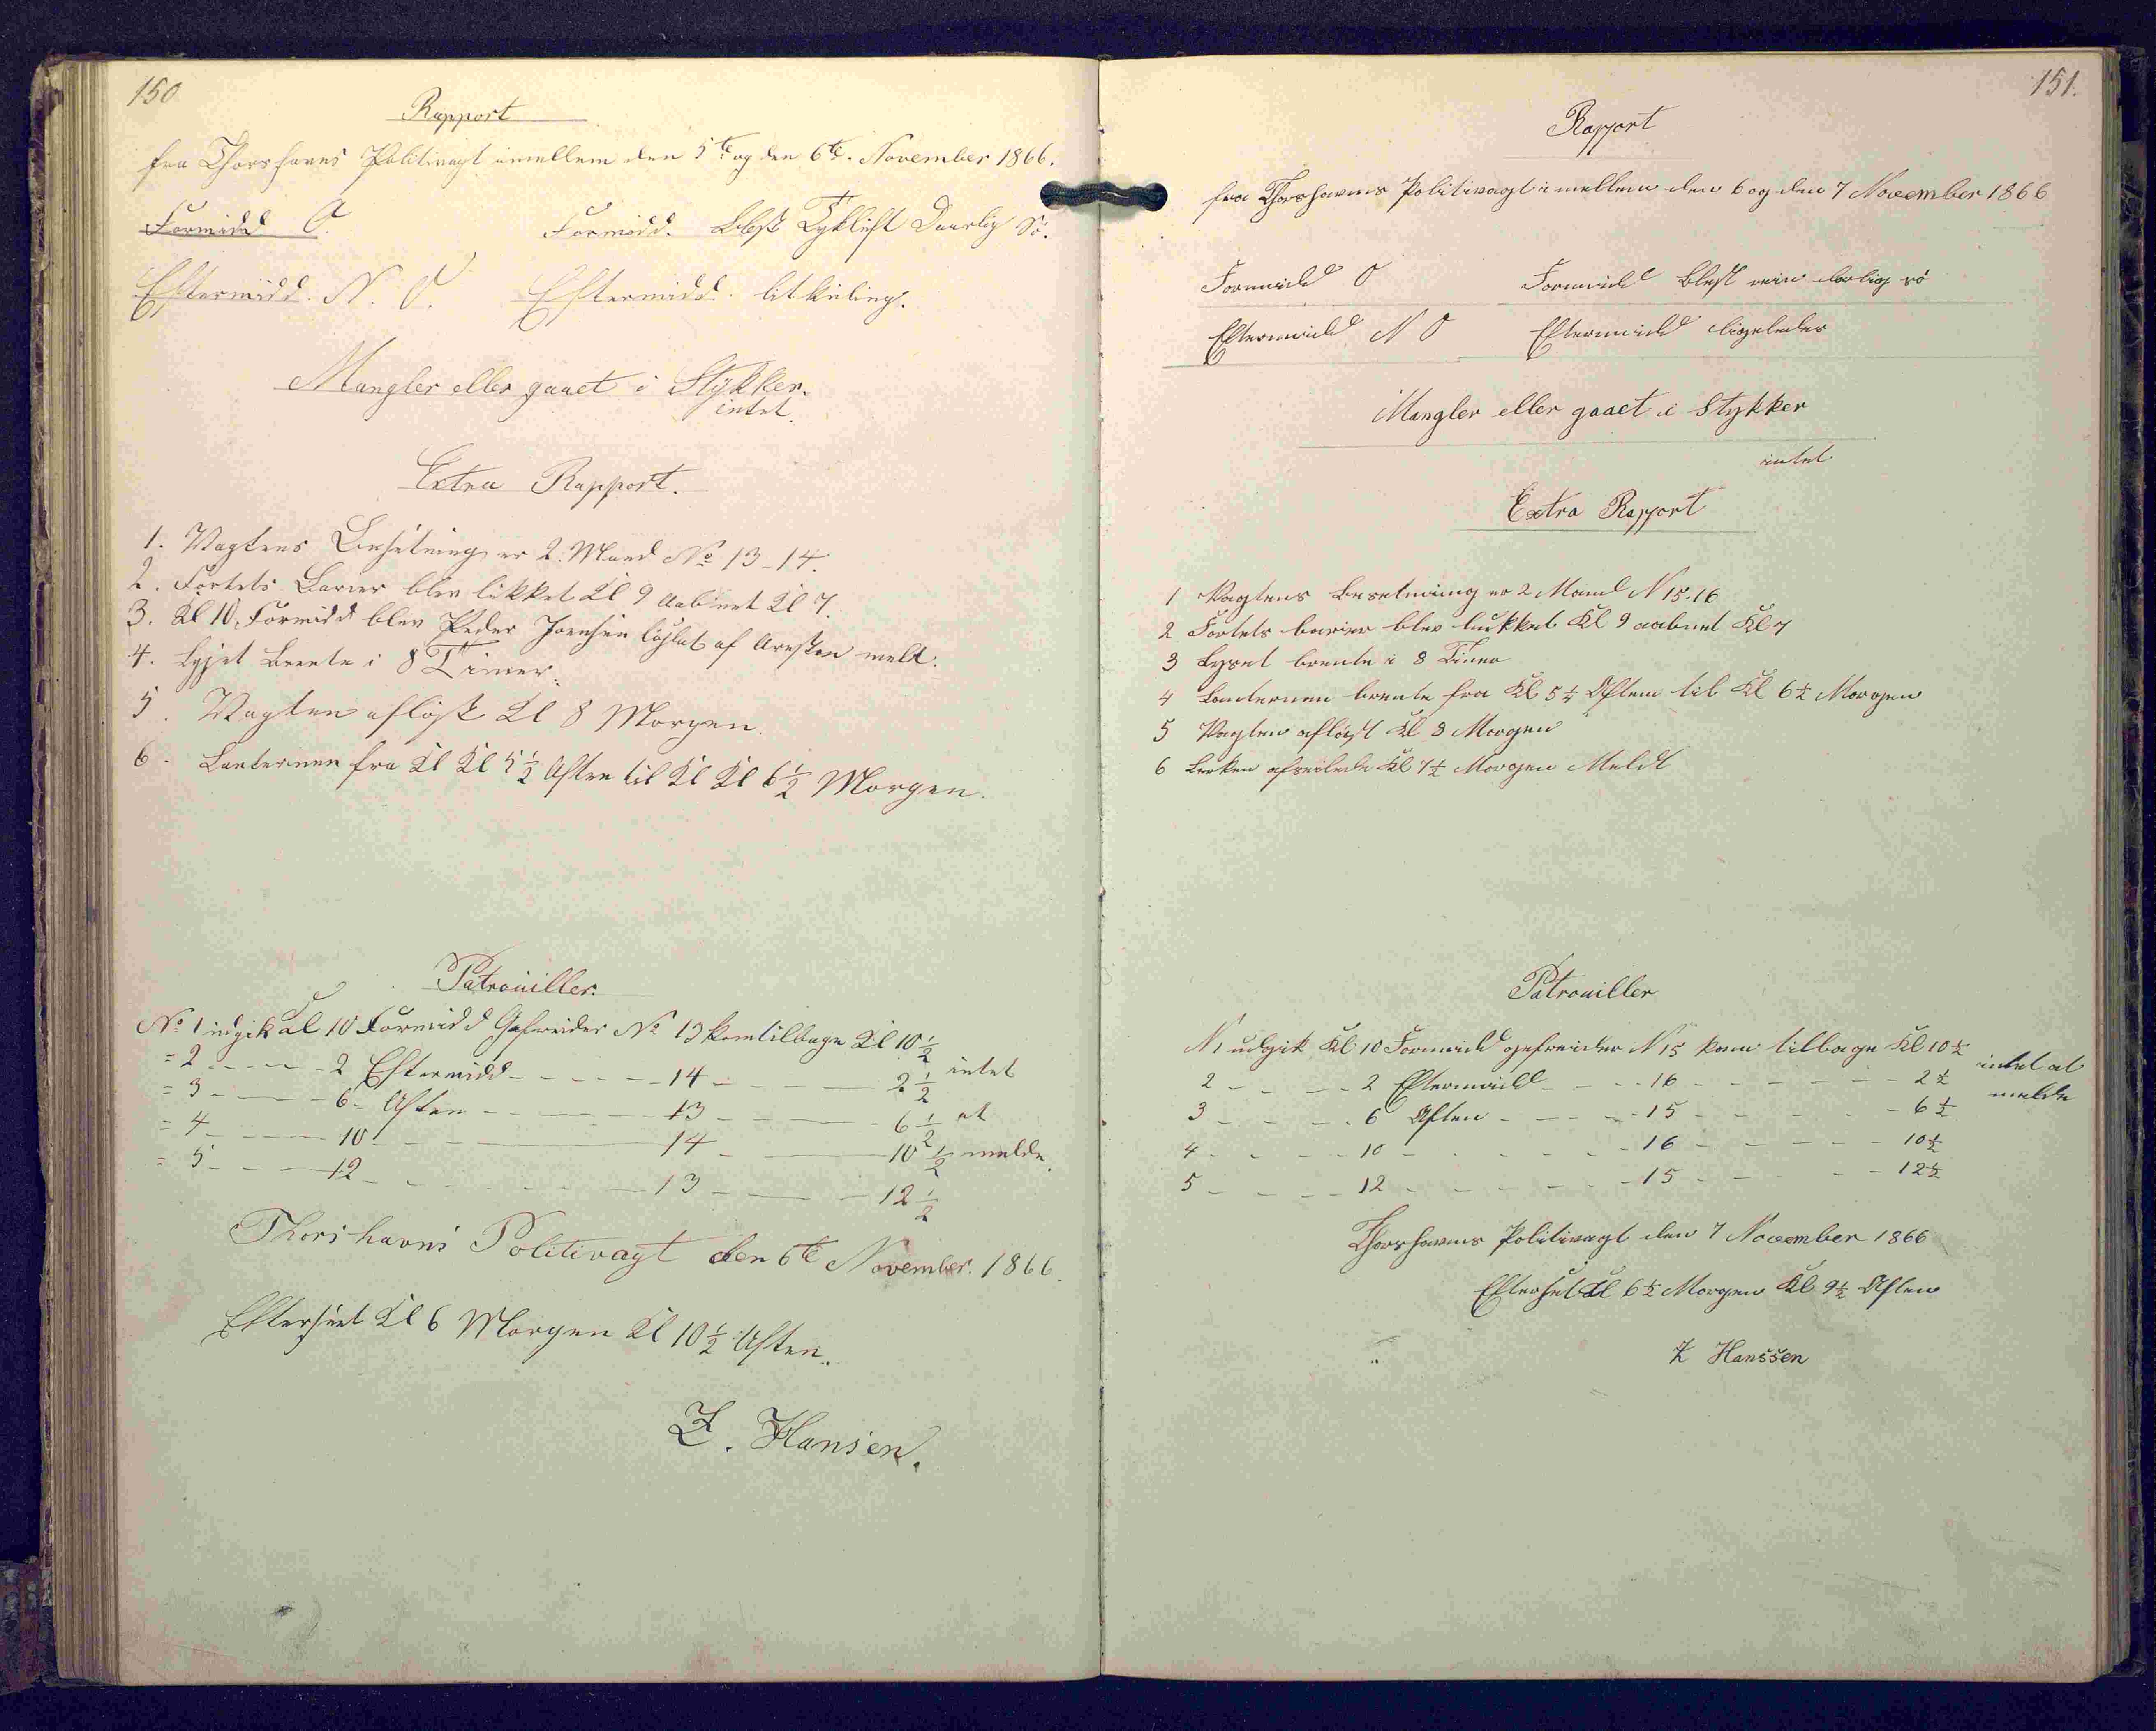 150
Rapport
fra Thorshavns Politivagt imellem den 5te og den 6te November 1866.
Formidd O. Formidd. Blest Tykluft Daarlig Sö.
Eftermidd. N. O. Eftermidd. lit kuling.
Mangler eller gaaet i Stykker.
intet.
Extra Rapport.
1. Vagtens Besetning er 2. Mand No 13-14.
2. Fortets Barier blev lukket Kl 9 aabnet Kl 7
3. Kl 10. Formidd blev Peder Joensen löslat af Aresten melt.
4. Lyset brente i 8 Timer.
5. Vagten aflöst Kl 8 Morgen.
6. Lanternen fra Kl Kl 5½ Aften til Kl Kl 6½ Morgen.
Patrouiller.
No 1 udgik Kl 10 Formidd Gefreider No 13 kom tilbage Kl 10½
= 2 - - - - 2 Eftermidd - - - - - 14 - - - - 2½ intet
= 3 - - - - 6 - Aften - - - - 13 - - - - 6½ at
= 4 - - - - 10 - - - - 14 - - - - 10½ melde.
= 5 - - - - 12 - - - - 13 - - - - 12½
Thorshavns Politivagt den 6te November. 1866.
Eftersset Kl 6 Morgen Kl 10½ Aften.
Z. Hansen.
151.
Rapport
fra Thorshavns Politivagt imellem den 6 og den 7 November 1866
Formidd O Formidd Blest rein dorlig sö
Eftermidd N O Eftermidd ligeledes
Mangler eller gaaet i Stykker
intet
Extra Rapport
1 Vagtens Besetning er 2 Mand N 15-16
2 Fortets barier blev lukket Kl 9 aabnet Kl 7
3 Lyset brente i 8 Timer
4 Lanternen brente fra Kl 5½ Aften til Kl 6½ Morgen
5 Vagten aflöst Kl 8 Morgen
6 afseilede Kl 7½ Morgen Meldt
Patrouiller
N 1 udgik Kl 10 Formidd gefreider N 15 kom tilbage Kl 10½
2 - - - - 2 Eftermidd - - - 16 - - - - 2½ intet at
3 - - - - 6 Aften - - - - 15 - - - - 6½ melde
4 - - - - 10 - - - - 16 - - - - 10½
5 - - - - 12 - - - - 15 - - - - 12½
Thorshavns Politivagt den 7 November 1866
Efterset Kl 6½ Morgen Kl 9½ Aften
Z Hanssen